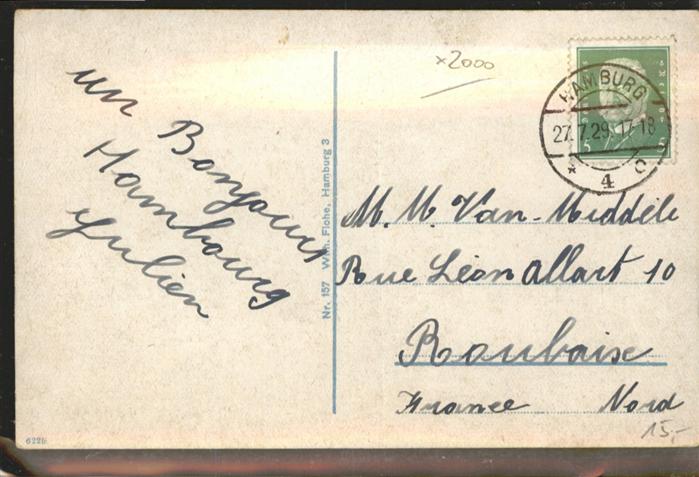 un Bonjour
Hambourg
Julien
x2000
HAMBURG
27.7.29. 17-18
* 4 C
5 5
Nr. 157 Wilh. Fiche, Hamburg 3
M. M. Van-Middele
Rue Léon Allart 10
Roubaise
France Nord
15,-
6225